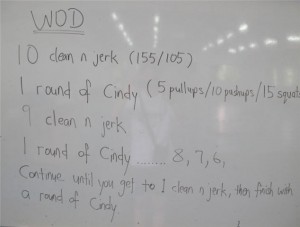 WOD
10 clean n jerk (155/105)
1 round of Cindy (5 pullups/10 pushups/15 squats
9 clean n jerk
1 round of Cindy ........ 8, 7, 6,
Continue until you get to 1 clean n jerk, then finish with
a round of Cindy